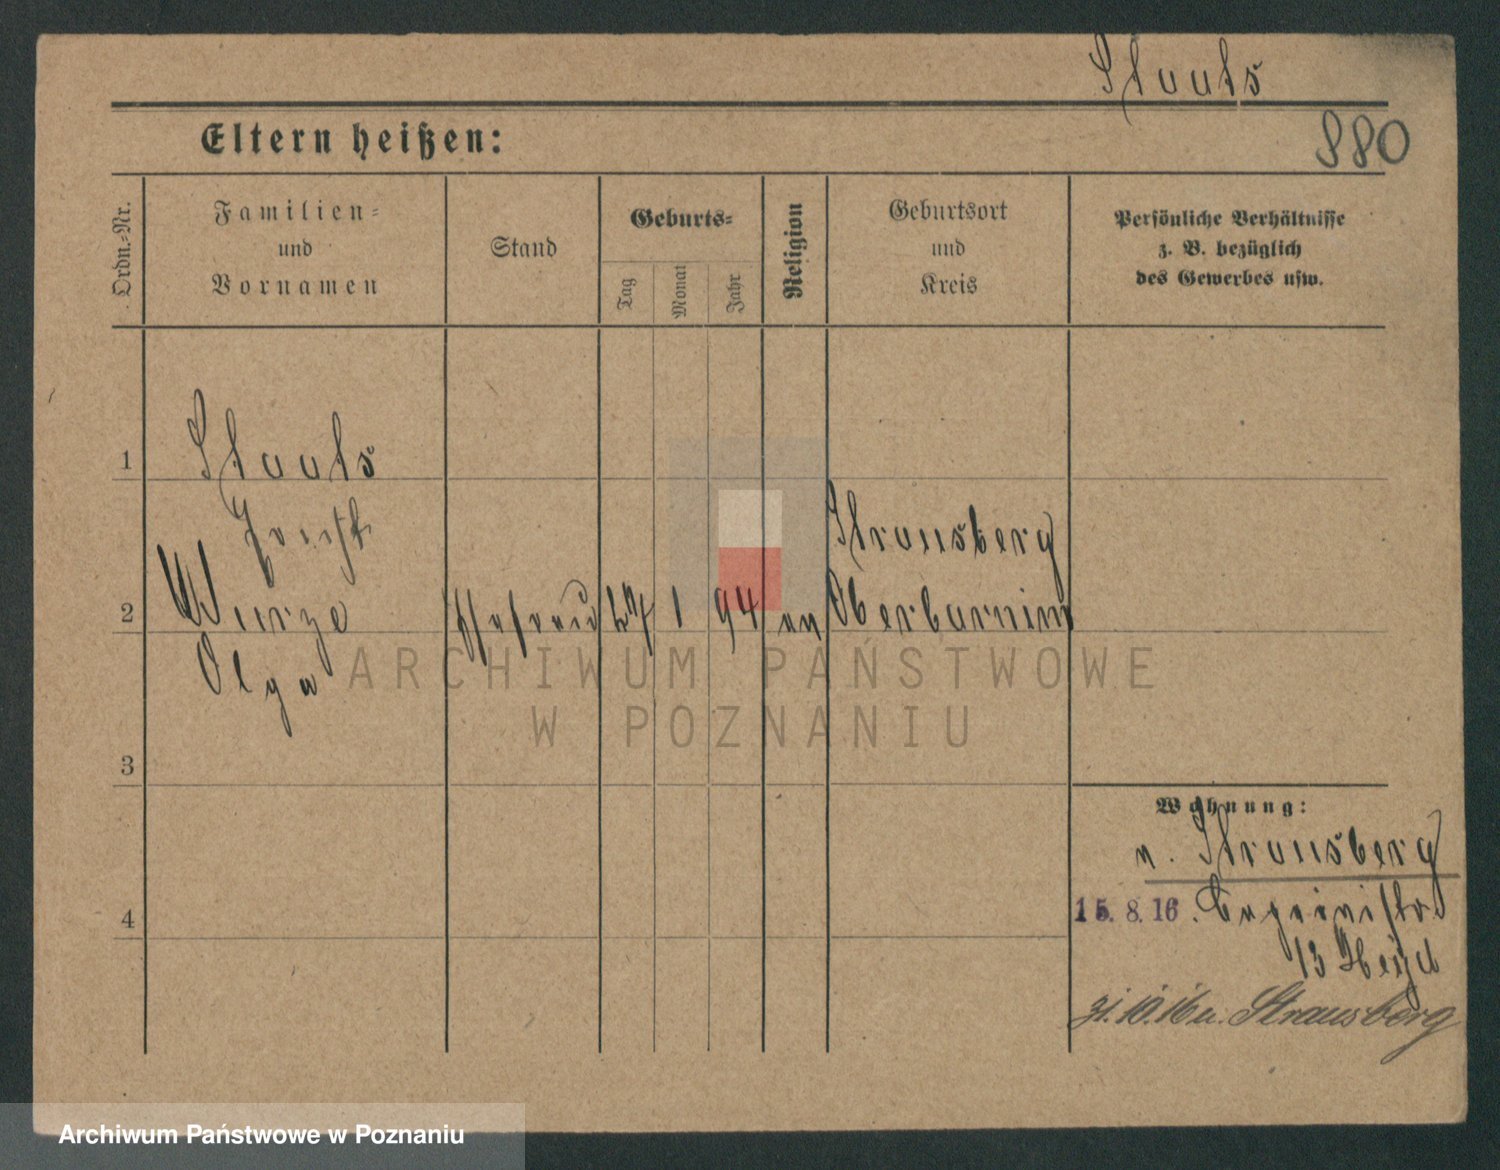 Staats
880
Eltern heißen:
Ordn.-Nr.
Familien-
und
Vornamen
Stand
Geburts-
Tag
Monat
Jahr
Religion
Geburtsort
und
Kreis
Persönliche Verhältnisse
z. B. bezüglich
des Gewerbes usw.
1
Staats
2
Wurze
Olga
27 1 94
Strausberg
Oberbarnim
3
4
Wohnung:
n. Strausberg
15. 8. 16.
13
31.10.16 n. Strausberg
ARCHIWUM PAŃSTWOWE
W POZNANIU
Archiwum Państwowe w Poznaniu